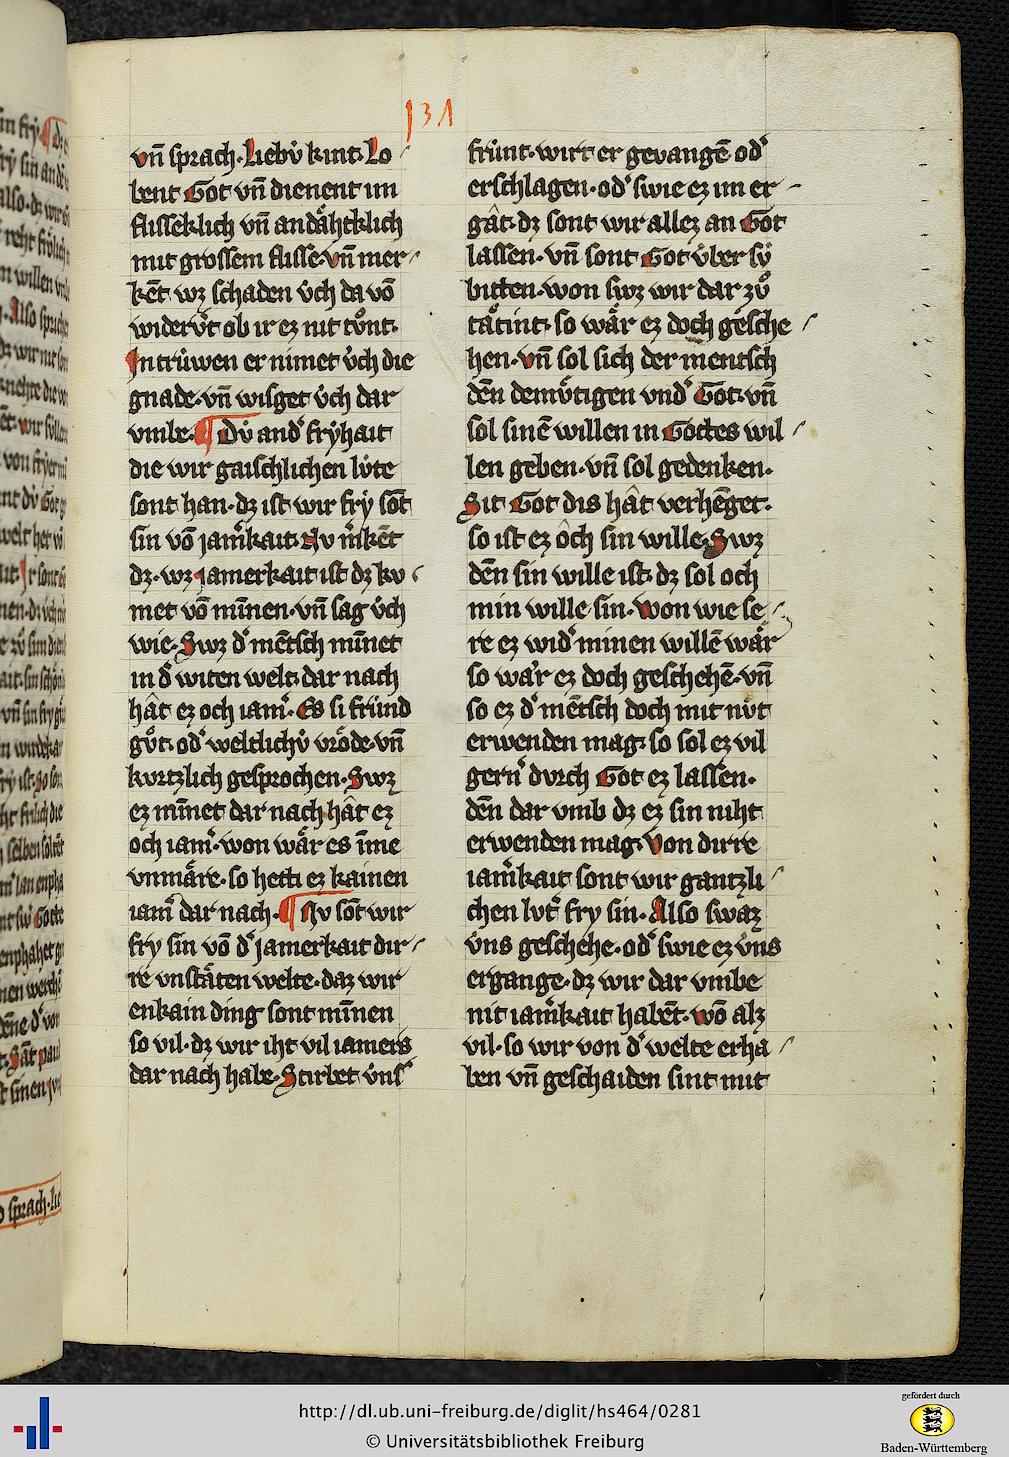 131
vn̄ sprach. Liebv̍ kint. Lo-
bent Got vn̄ dienent im
flisseklich vn̄ andähtklich
mit grossem flisse. vn̄ mer-
kēt wz schaden v̍ch da vō
widervert ob ir ez nit tv̊nt.
Intrùwen er nimet v̍ch die
gnade. vn̄ wisget v̍ch dar
vmbe. ¶ Dv̍ and͛ fryhait
die wir gaischlichen lv̍te
sont han. dz ist wir fry sōt
sin vō iam͛kait. Nv m͛kēt
dz. wz iamerkait ist dz kv-
met vō mīnen. vn̄ sag v̍ch
wie. Swz d͛ mētsch mīnet
in d͛ witen welt. dar nach
hât ez och iam͛. Es si frùnd
gv̊t. od͛ weltlichv̍ vrôde. vn̄
kvrtzlich gesprochen. Swz
ez mīnet dar nach hât ez
och iam͛. won wäͤr es īme
vnmäͤre. so hetti ez kainen
iam͛ dar nach. ¶ Nv sōt wir
fry sin vō d͛ jamerkait dir-
re vnstäͤten welte. daz wir
enkain ding sont mīnen
so vil. dz wir iht vil iamers
dar nach habe. Stirbet v̍ns͛
frùnt. wirt er gevangē od͛
erschlagen. od͛ swie ez im er-
gât. dz sont wir allez an Got
lassen. vn̄ sont Got v̍ber sy̍
bitten. won swz wir dar zv̊
täͤtint. so wäͤr ez doch gesche-
hen. vn̄ sol sich der mentsch
dēn demv̍tigen vnd͛ Got. vn̄
sol sinē willen in Gottes wil-
len geben. vn̄ sol gedenken.
Sit Got dis hât verhēget.
so ist ez ôch sin wille. Swz
dēn sin wille ist. dz sol och
min wille sin. Won wie se-
re ez wid͛ minen willē wäͤr
so wäͤr ez doch geschehē. vn̄
so ez d͛ mētsch doch mit nv̍t
erwenden mag. so sol ez vil
gern͛ dvrch Got ez lassen.
dēn dar vmb dz ez sin niht
erwenden mag. Von dirre
iam͛kait sont wir gantzli-
chen lvt͛ fry sin. Also swaz
v̍ns geschehe. od͛ swie ez v̍ns
ergange. dz wir dar vmbe
nit iam͛kait habēt. wō alz
vil. so wir von d͛ welte erha-
ben vn̄ geschaiden sint mit
sprach. Lie
http://dl.ub.uni-freiburg.de/diglit/hs464/0281
© Universitätsbibliothek Freiburg
gefördert durch
Baden-Württemberg